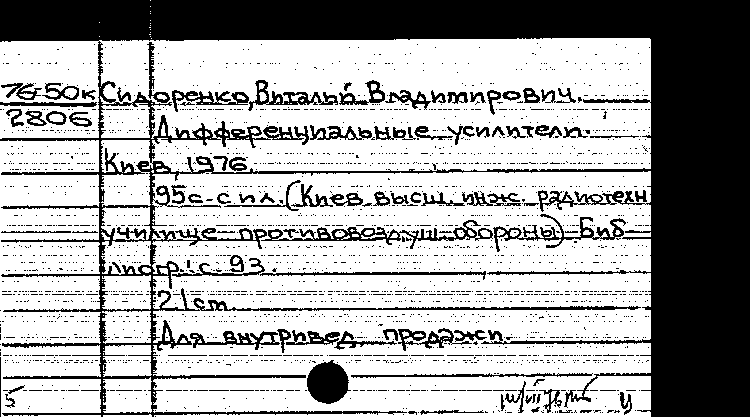 76-50к Сидоренко, Виталий Владимирович.
2806
Дифференциальные усилители.
Киев, 1976.
95с. с ил. (Киев. высш. инж. радиотехн
училище противовоздуш. обороны) Биб-
лиогр.: с. 93.
21cm.
Для внутривед. продажи.
5